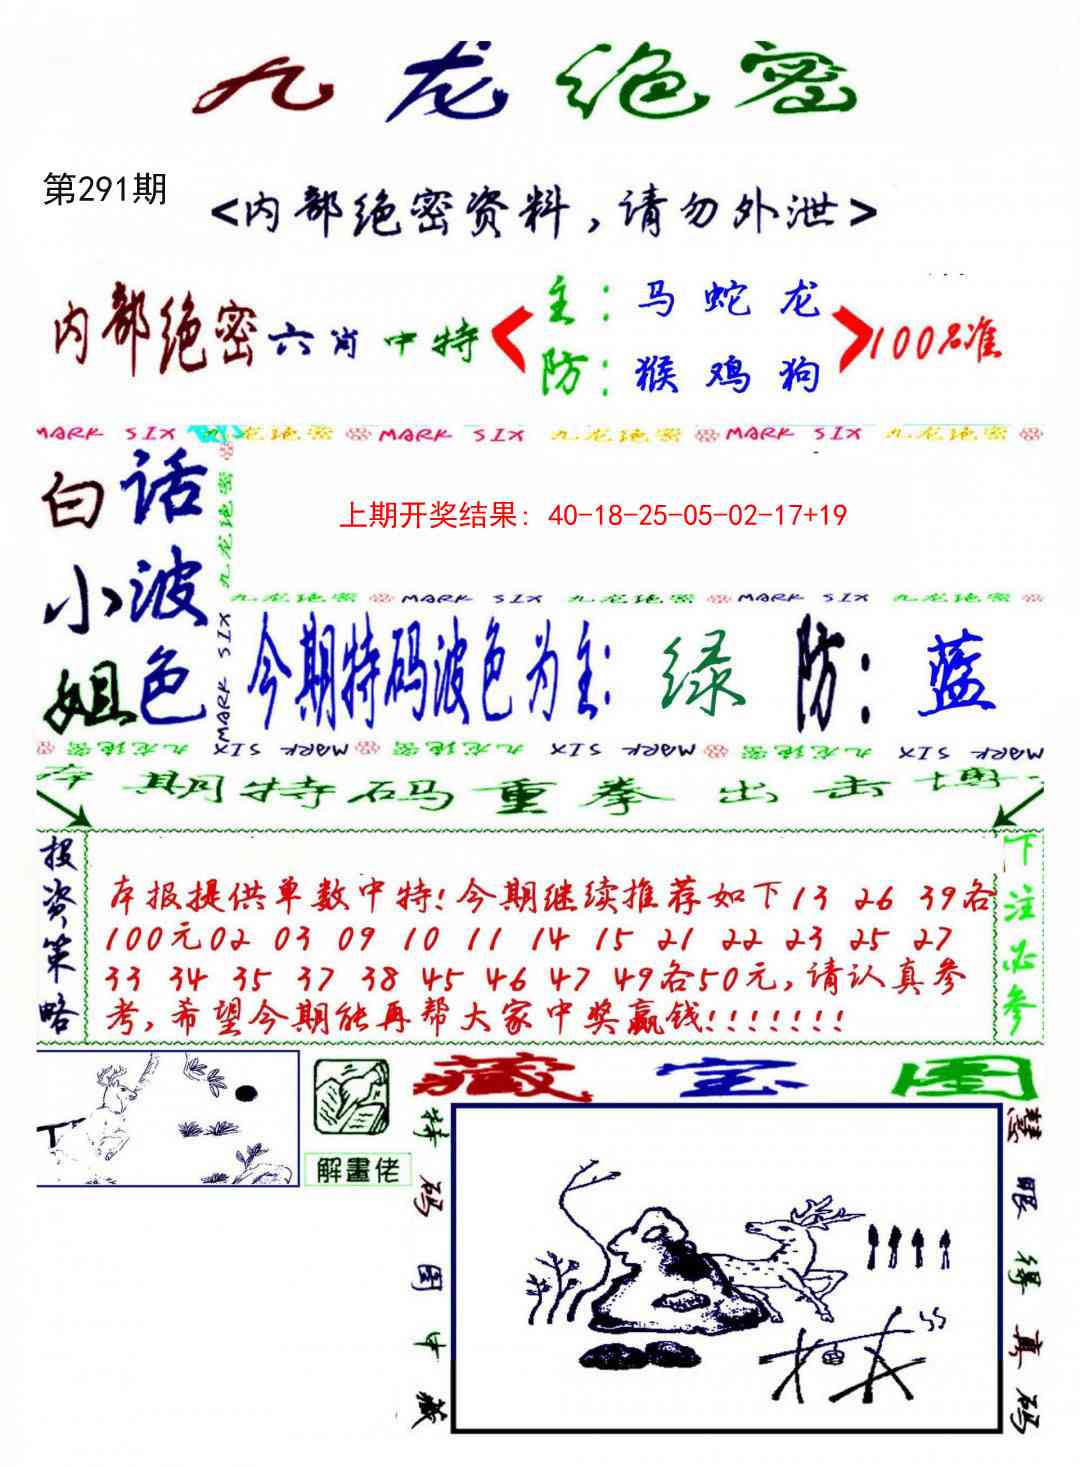 九龙绝密
第291期
<内部绝密资料,请勿外泄>
内部绝密六肖中特
主:马 蛇 龙
防:猴 鸡 狗
100%准
MARK SIX 九龙绝密 MARK SIX 九龙绝密 MARK SIX 九龙绝密
白话
小波
姐色
九龙绝密
MARK SIX
上期开奖结果: 40-18-25-05-02-17+19
九龙绝密 MARK SIX 九龙绝密 MARK SIX 九龙绝密
今期特码波色为主: 绿 防: 蓝
九龙绝密 MARK SIX 九龙绝密 MARK SIX 九龙绝密 MARK SIX
本期特码重拳出击博
投资策略
本报提供单数中特!今期继续推荐如下13 26 39各
100元02 03 09 10 11 14 15 21 22 23 25 27
33 34 35 37 38 45 46 47 49各50元,请认真参
考,希望今期能再帮大家中奖赢钱!!!!!!!
下注必参
解畫佬
藏宝图
特码图中藏
慧眼得真码